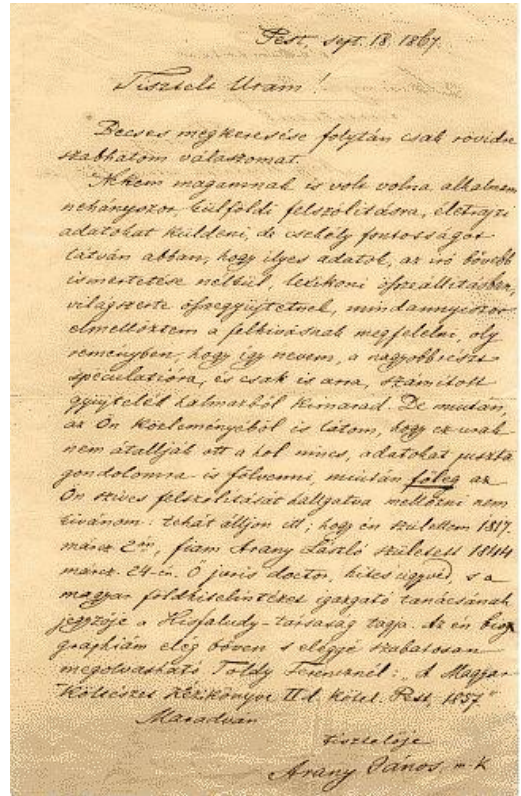 Pest, sept. 18. 1867.
Tisztelt Uram!
Becses megkeresése folytán csak rövidre
szabhatom válaszomat.
Nekem magamnak is volt volna alkalmam
nehányszor, külföldi felszólításra, életrajzi
adatokat küldeni, de csekély fontosságot
látván abban, hogy ilyes adatok, az író bővebb
ismertetése nélkül, lexikoni összeállításban,
világszerte összegyűjtetnek, mindannyiszor
elmellőztem a felhívásnak megfelelni, oly
reményben, hogy így nevem, a nagyobbrészt
speculatióra, és csak is arra, számított
gyűjtelék halmazból kimarad. De miután,
az Ön közleményéből is látom, hogy ez urak
nem átallják ott a hol nincs, adatokat puszta
gondolomra is fölvenni, miután főleg az
Ön szives felszólítását hallgatva mellőzni nem
kivánom: tehát álljon itt; hogy én születtem 1817.
márcz 2án, fiam Arany László született 1844
márcz. 24-én. Ő juris doctor, hites ügyvéd, s a
magyar földhitelintézet igazgató tanácsának
jegyzője a Kisfaludy-társaság tagja. Az én biog
graphiám elég bőven s eléggé szabatosan
megolvasható Toldy Ferencznél: "A Magyar
Költészet Kézikönyve IId. kötet. Pest, 1857"
Maradván
tisztelője
Arany János m-k